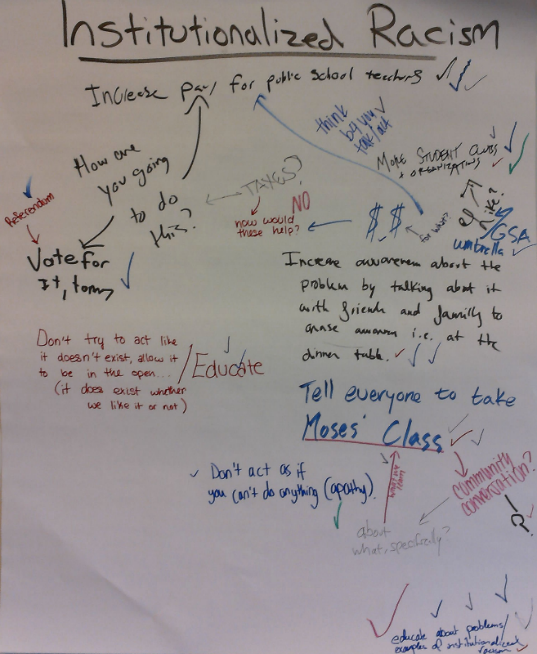 Institutionalized Racism
Increase pay for public school teachers
think
More STUDENT CLUBS
+ ORGANIZATIONS
How are
you going
to do
this?
TAXES?
NO
how would
these help?
$ $
for what?
like?
GSA
umbrella
Referendum
Vote for
It,
Increase awareness about the
problem by talking about it
with friends and family to
awareness i.e. at the
dinner table.
Don't try to act like
it doesn't exist, allow it
to be in the open...
(it does exist whether
we like it or not)
/ Educate
Tell everyone to take
Moses' Class
Don't act as if
you can't do anything (apathy)
community
conversation?
about
what, specifically?
educate about problems/
examples of institutionalized
racism